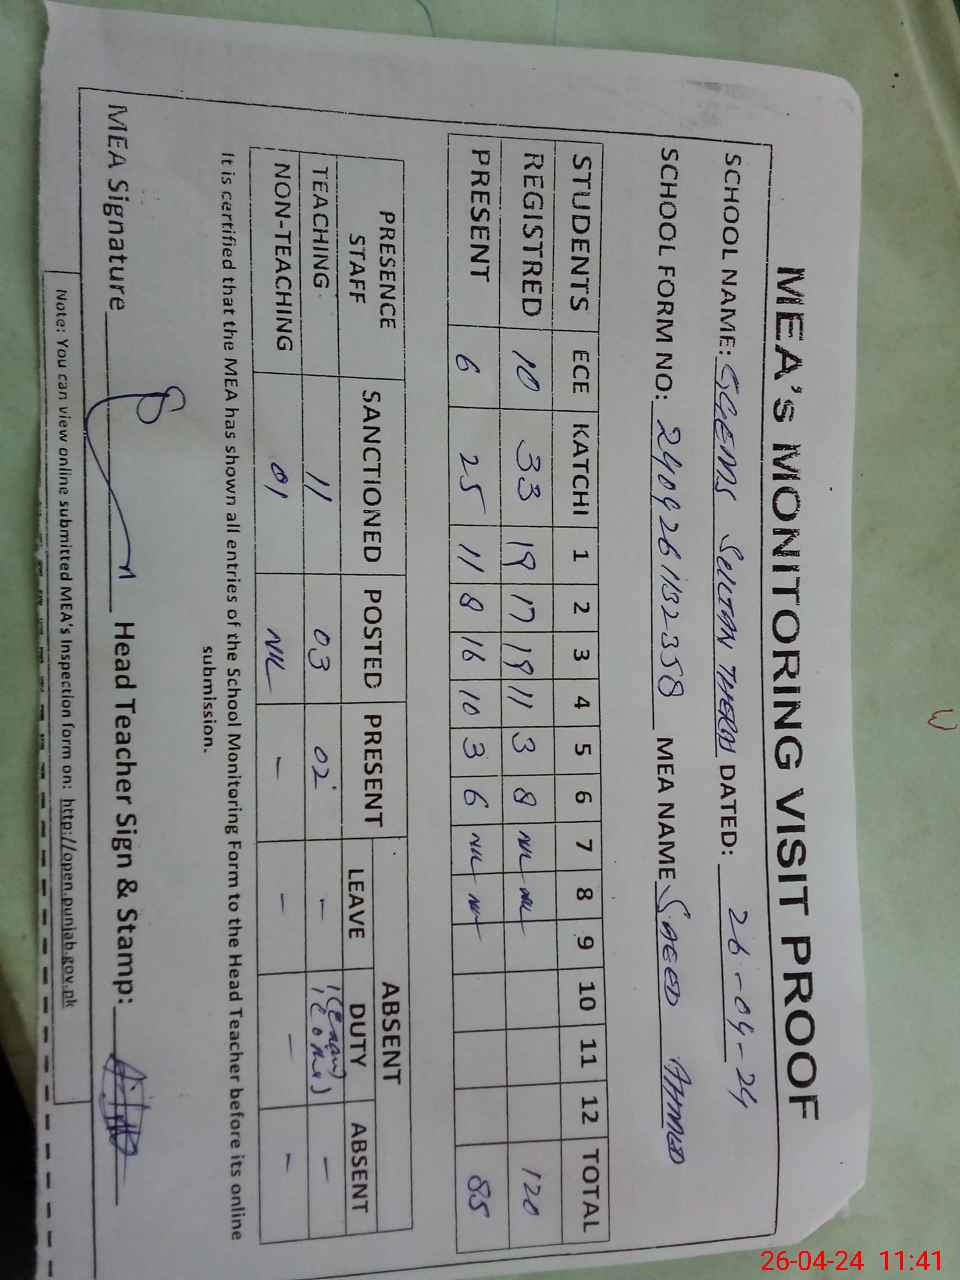 MEA's MONITORING VISIT PROOF
SCHOOL NAME: GGEMS SULTAN DATED: 26-04-24
SCHOOL FORM NO: 2409261132358 MEA NAME SAEED AHMED
STUDENTS ECE KATCHI 1 2 3 4 5 6 7 8 9 10 11 12 TOTAL
REGISTRED 10 33 19 17 19 11 3 8 NIL NIL 120
PRESENT 6 25 11 8 16 10 3 6 NIL NIL 85
PRESENCE STAFF SANCTIONED POSTED PRESENT ABSENT
LEAVE DUTY ABSENT
TEACHING 11 03 02 - 1 (Exam -
NON-TEACHING 01 NIL - - - -
It is certified that the MEA has shown all entries of the School Monitoring Form to the Head Teacher before its online
submission.
MEA Signature Head Teacher Sign & Stamp:
Note: You can view online submitted MEA's Inspection form on: http://open.punjab.gov.pk
26-04-24 11:41